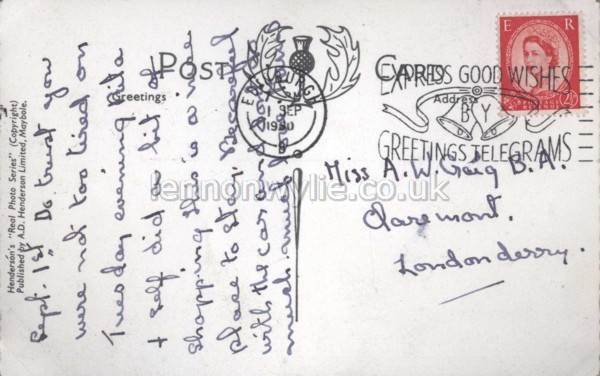 POST CARD
Greetings
Address
EDINBURGH
SEP
1960
EXPRESS GOOD WISHES
BY
GREETINGS TELEGRAMS
E R
2½
Henderson's "Real Photo Series" (Copyright)
Published by A.D. Henderson Limited, Maybole.
Sept. 1st Do trust you
were not too tired on
Tuesday evening. Rita
+ self did a bit of
shopping this is a nice
place to stay.
with the car and
much
Miss A. W. Craig B.A.
Claremont.
Londonderry.
lennonwylie.co.uk